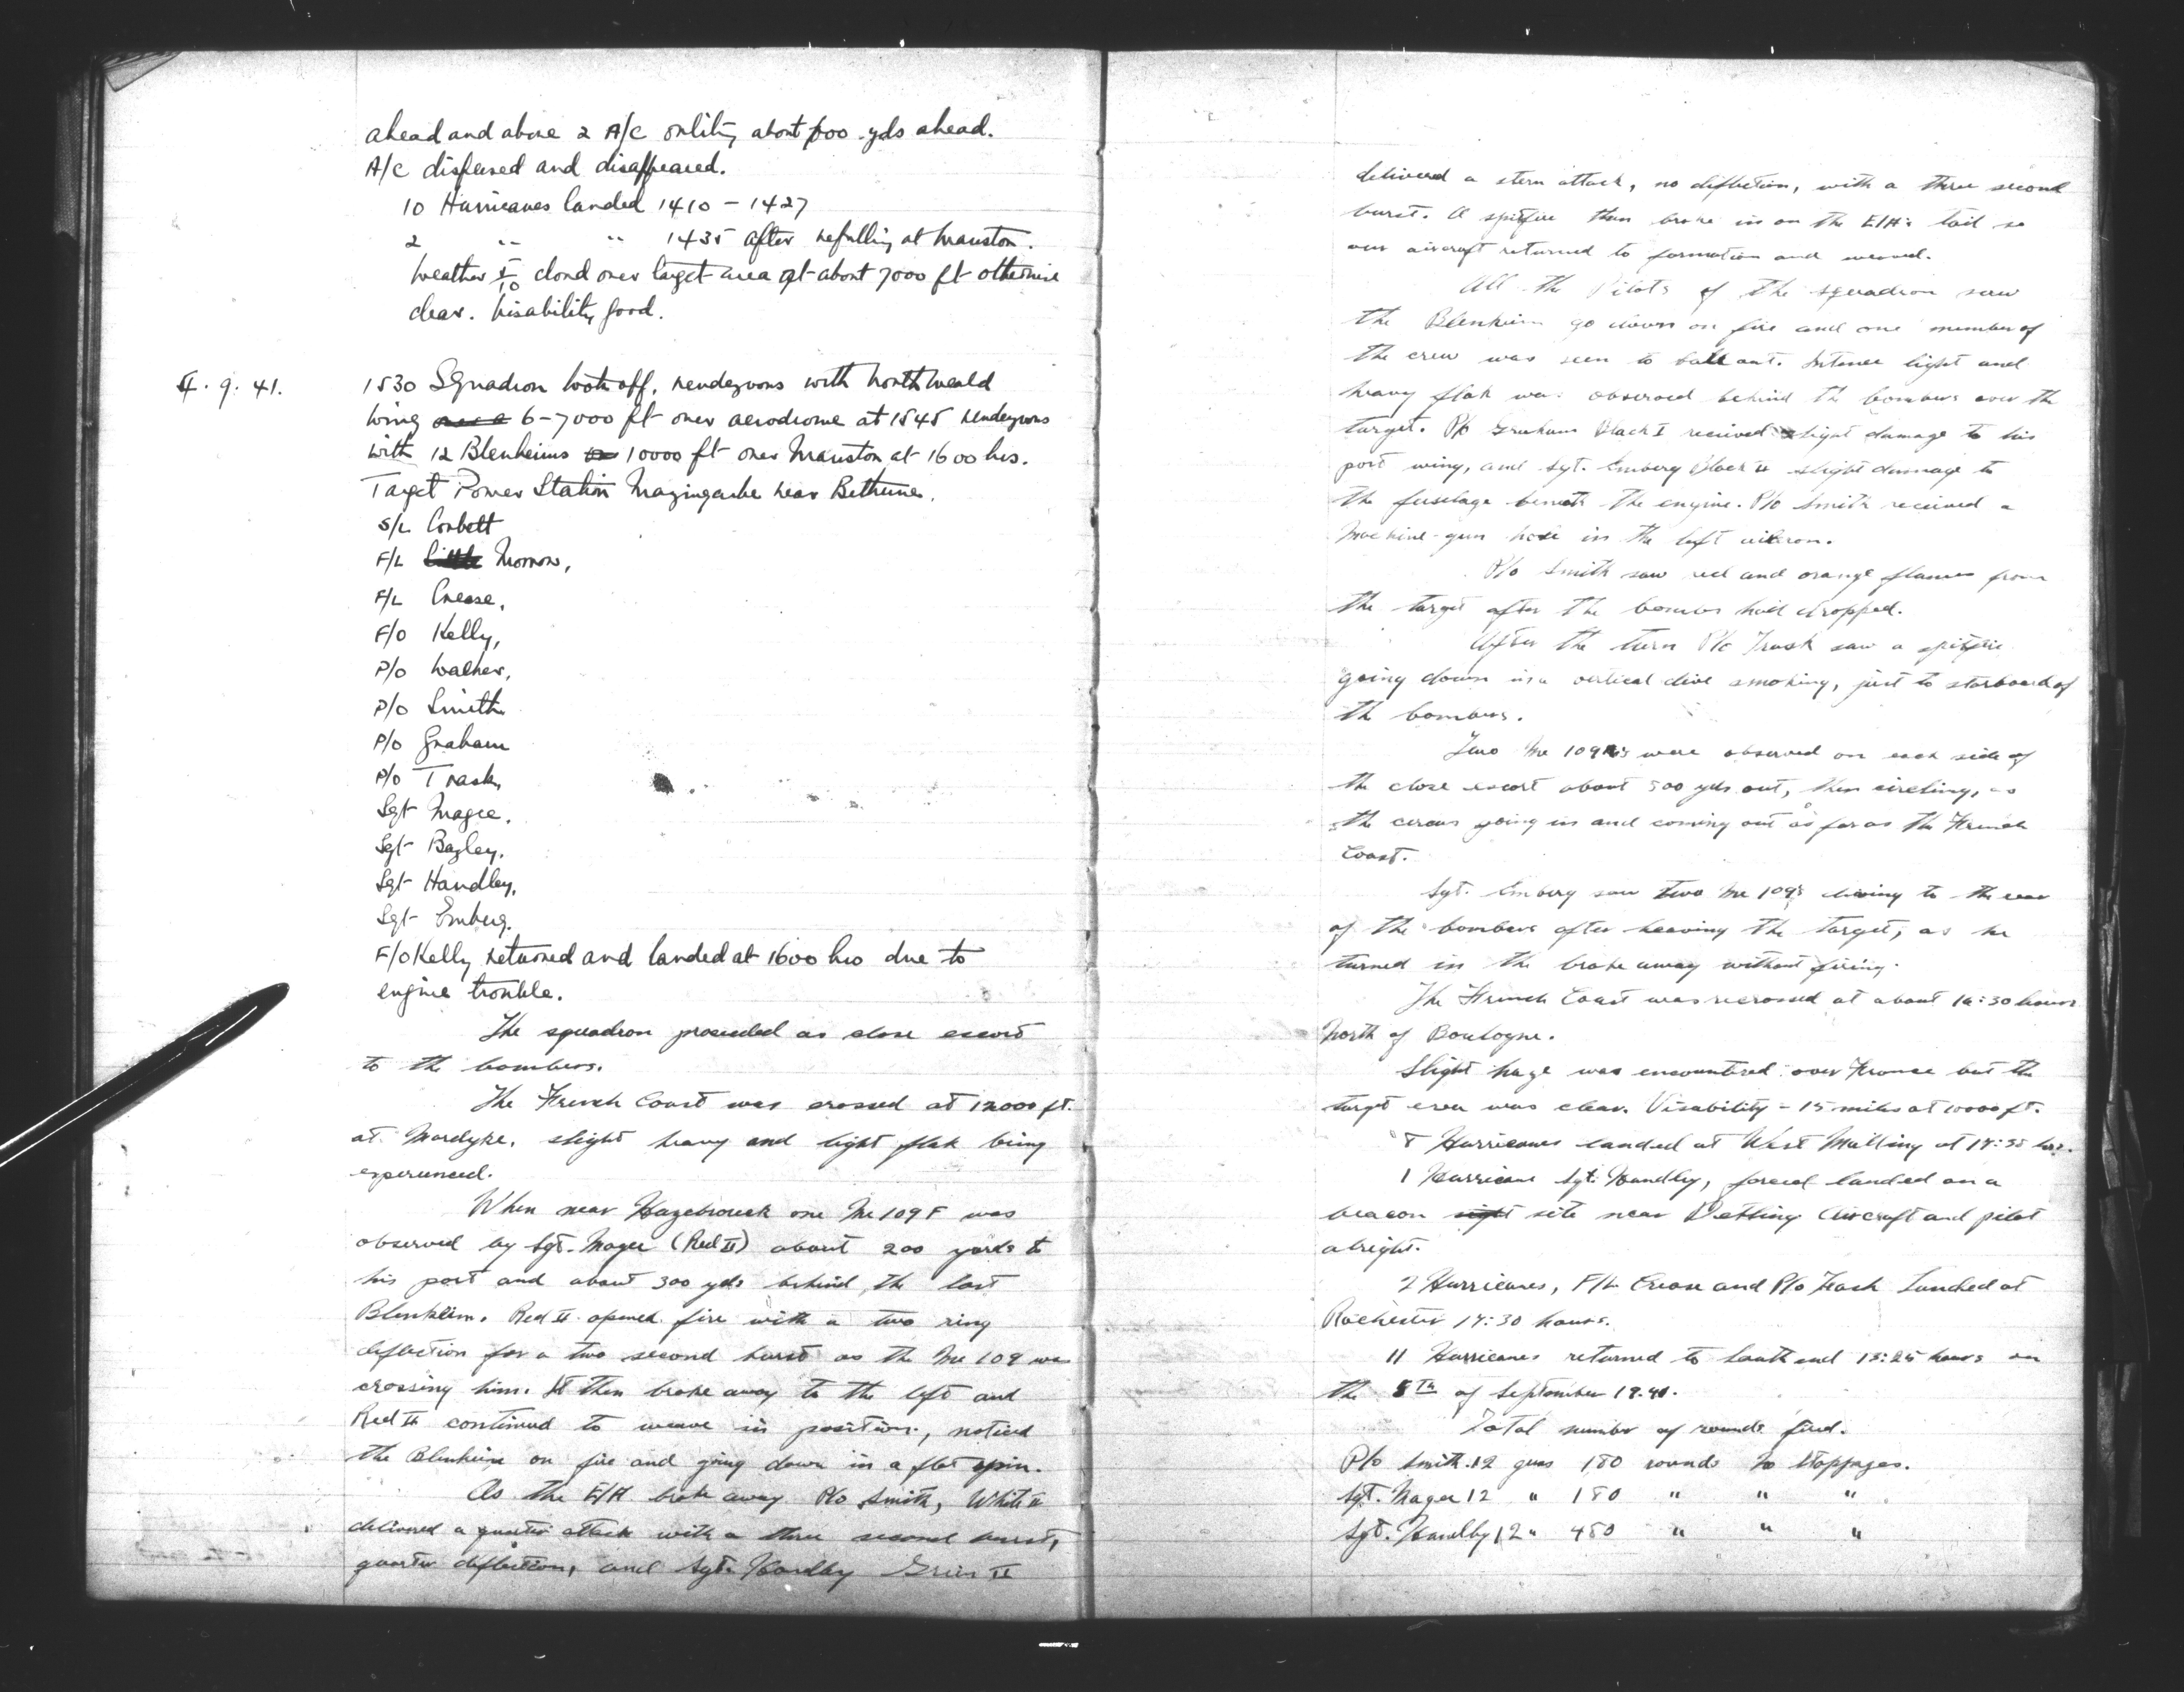 ahead and above 2 A/C orbiting about 600 yds ahead.
A/C dispersed and disappeared.
10 Hurricanes landed 1410 - 1427
2 " " 1435 after refuelling at Manston.
Weather 5/10 cloud over target area at about 7000 ft otherwise
clear. Visability good.
4. 9. 41.
1530 Squadron took off, rendezvous with North Weald
Wing 6-7000 ft over aerodrome at 1545 rendezvous
with 12 Blenheims 10000 ft over Manston at 1600 hrs.
Target Power Station Mazingarbe near Bethune.
S/L Corbett
F/L Morrow,
F/L Crease,
F/O Kelly,
P/O Walker,
P/O Smith
P/O Graham
P/O Trask,
Sgt Magee.
Sgt Bagley.
Sgt Handley,
Sgt Emberg.
F/O Kelly returned and landed at 1600 hrs due to
engine trouble.
The squadron proceeded as close escort
to the bombers.
The French Coast was crossed at 12000 ft.
at Mardyke, slight heavy and light flak being
experienced.
When near Hazebrouck one Me 109 F was
observed by Sgt. Magee (Red II) about 200 yards to
his port and about 300 yds behind the last
Blenheim. Red II opened fire with a two ring
deflection for a two second burst as the Me 109 was
crossing him. It then broke away to the left and
Red II continued to weave in position, noticed
the Blenheim on fire and going down in a flat spin.
As the E/A broke away P/O Smith, White II
delivered a quarter attack with a three second burst,
quarter deflection, and Sgt. Handley Green II
delivered a stern attack, no deflection, with a three second
burst. A spitfire then broke in on the E/A's tail so
our aircraft returned to formation and weaved.
All the Pilots of the squadron saw
the Blenheim go down on fire and one member of
the crew was seen to bale out. Intense light and
heavy flak was observed behind the bombers over the
target. P/O Graham Black I received slight damage to his
port wing, and Sgt. Emberg Black II slight damage to
the fuselage beneath the engine. P/O Smith received a
Machine-gun hole in the left aileron.
P/O Smith saw red and orange flames from
the target after the bombs had dropped.
After the turn P/O Trask saw a spitfire
going down in a vertical dive smoking, just to starboard of
the bombers.
Two Me 109's were observed on each side of
the close escort about 500 yds out, then circling, as
the circus going in and coming out as far as the French
Coast.
Sgt. Emberg saw two Me 109's diving to the rear
of the bombers after leaving the target, as he
turned in the broke away without firing.
The French Coast was recrossed at about 16:30 hours
North of Boulogne.
Slight haze was encountered over France but the
target area was clear. Visability - 15 miles at 10000 ft.
8 Hurricanes landed at West Malling at 17:35 hrs.
1 Hurricane Sgt. Handley, forced landed on a
beacon site near Detling Aircraft and pilot
alright.
2 Hurricanes, F/L Crease and P/O Trask landed at
Rochester 17:30 hours.
11 Hurricanes returned to Southend 15:25 hours on
the 5th of September 19.41.
Total number of rounds fired.
P/O Smith. 12 guns 180 rounds No Stoppages.
Sgt. Magee 12 " 180 " " "
Sgt. Handley 12 " 480 " " "